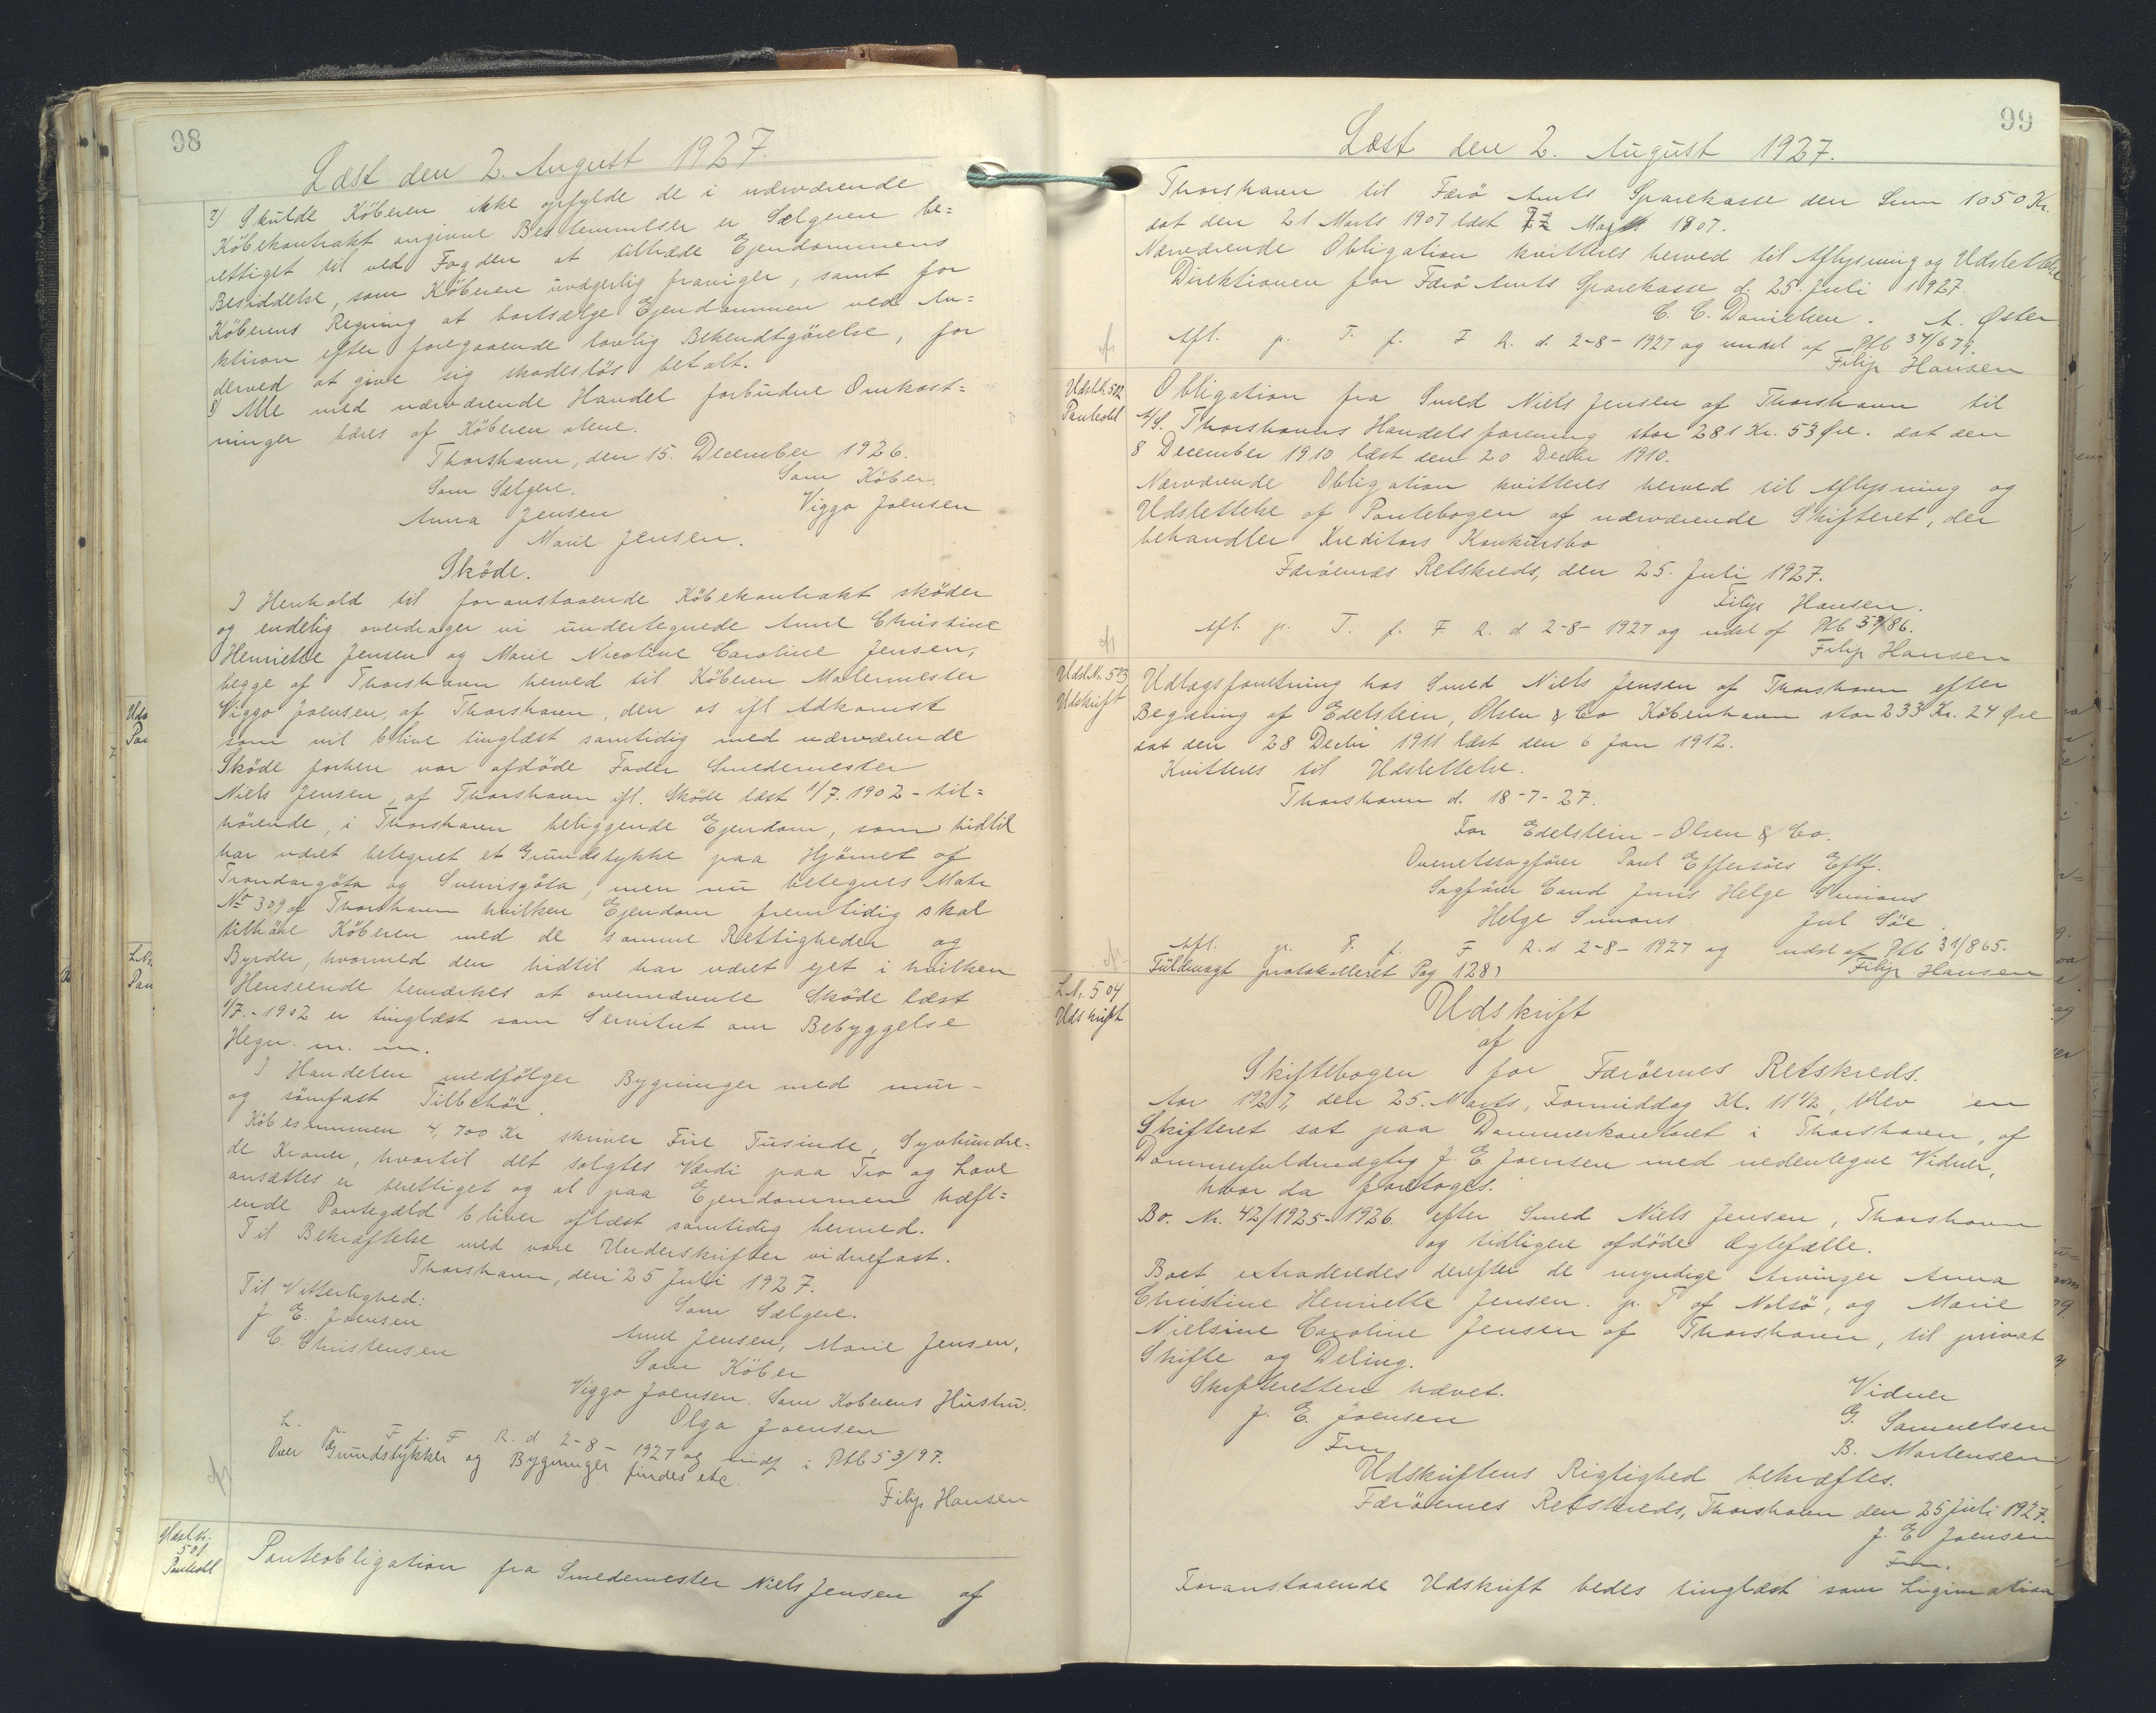 98
Læst den 2. August 1927.
7) Skulde Köberen ikke opfylde de i nærværende
Köbekontrakt angivne Bestemmelser er Sælgeren be=
rettiget til ved Fogden at tiltræde Ejendommens
Besiddelse, som Köberen uvægerlig fraviger, samt for
Köberens Regning at bortsælge Ejendommen ved Au=
ktion efter foregaaende lovlig Bekendtgörelse, for
derved at give sig skadeslös betalt.
8) Alle med nærværende Handel forbudne Omkost=
ninger bæres af Köberen alene.
Thorshavn, den 15. December 1926.
Som Sælgere. Som Köber.
Anna Jensen Viggo Joensen
Marie Jensen.
Sköde.
I Henhold til foranstaaende Köbekontrakt sköder
og endelig overdrager vi undertegnede Anne Christine
Henriette Jensen og Marie Nicoline Caroline Jensen,
begge af Thorshavn herved til Köberen Malermester
Viggo Joensen, af Thorshavn, den os ifl Adkomst
som vil blive tinglæst samtidig med nærværende
Sköde forhen vor afdöde Fader Smedemester
Niels Jensen, af Thorshavn ifl. Sköde læst 1/7. 1902 - til=
hörende, i Thorshavn beliggende Ejendom, som hidtil
har været betegnet et Grundstykke paa Hjörnet af
Trondargöta og Sverrisgöta, men nu betegnes Matr
No 309 af Thorshavn hvilken Ejendom fremtidig skal
tilhöre Köberen med de samme Rettigheder og
Byrder, hvormed den hidtil har været ejet i hvilken
Henseende bemærkes at ovennævnte Sköde læst
1/7. - 1902 er tinglæst som Servitut om Bebyggelse
Hegn. m. m.
I Handelen medfölger Bygninger med mur-
og sömfast Tilbehör.
Köbesummen 4,700 Kr skriver Fire Tusinde, Syvhundre-
de Kroner, hvortil det solgtes Værdi paa Tro og Love
ansættes er berettiget og at paa Ejendommen hæft=
ende Pantegæld bliver aflæst samtidig hermed.
Til Bekræftelse med vore Underskrifter vidnefast.
Thorshavn, den 25 Juli 1927.
Til Vitterlighed: Som Sælgere.
J. E. Joensen Anne Jensen, Marie Jensen,
C. Christensen Som Köber
Viggo Joensen. Som Koberens Hustru.
Olga Joensen
L. p. T. f. F R. d 2-8- 1927 og indf i Ptb 53/97.
Over Grundstykker og Bygninger findes etc.
Filip Hansen
Udsl Nr.
501
Panteobl
Panteobligation fra Smedemester Niels Jensen af
99
Læst den 2. August 1927.
Thorshavn til Færö Amts Sparekasse den Sum 1050 Kr.
dat den 21 Marts 1907 læst 1907.
Nærværende Obligation kvitteres herved til Aflysning og Udslettelse
Direktionen for Færö Amts Sparekasse d. 25. Juli 1927
C. C. Danielsen. A. Øster
Afl. p. T. f. F R. d. 2-8- 1927 og uudsl af Ptb 34/679.
Filip Hansen
Udsl.N. 502
Panteobl
Obligation fra Smed Niels Jensen af Thorshavn til
A/S. Thorshavns Handelsforening stor 281 Kr. 53 Øre. dat den
8 December 1910 læst den 20 Decbr 1910.
Nærværende Obligation kvitteres herved til Aflysning og
Udslettelse af Pantebogen af nærværende Skifteret, der
behandler Kreditors Konkursbo
Færöernes Retskreds, den 25. Juli 1927.
Filip Hansen.
Afl. p. T. f. F R. d 2-8- 1927 og udsl af Ptb 39/86.
Filip Hansen
Udsl.N. 503
Udskrift
Udlægsforretning hos Smed Niels Jensen af Thorshavn efter
Begæring af Edelstein, Olsen & Co København stor 233 Kr. 24 Øre
dat den 28 Decbr 1911 læst den 6 Jan 1912.
Kvitteres til Udslettelse.
Thorshavn d. 18-7-27.
For Edelstein - Olsen & Co.
Overretssagfører Poul Effersöes Eftf.
Sagförer Cand Juris Helge Simons
Helge Simons Jul Söe
Afl. p. T. f. F R. d 2-8- 1927 og udsl af Ptb 31/865.
Fuldmagt protokolleret Pag 128) Filip Hansen
L.Nr. 504
Udskrift
Udskrift
af
Skiftebogen for Færöernes Retskreds.
Aar 1927, den 25. Marts, Formiddag Kl. 11 1/2, blev en
Skifteret sat paa Dommerkontoret i Thorshavn, af
Dommerfuldmægtig J. E Joensen med nedentegne Vidner,
hvor da foretoges:
Bo. Nr. 42/1925-1926. efter Smed Niels Jensen, Thorshavn
og tidligere afdöde Ægtefælle.
Boet extraderedes derefter de myndige Arvinger Anna
Christine Henriette Jensen. p. T af Nolsö, og Marie
Nielsine Caroline Jensen af Thorshavn, til privat
Skifte og Deling.
Skifteretten hævet. Vidner
J. E. Joensen G. Samuelsen
Fm B. Mortensen
Udskriftens Rigtighed bekræftes.
Færöernes Retskreds, Thorshavn den 25 Juli 1927.
J. E Joensen
Fm.
Foranstaaende Udskrift bedes tinglæst som Ligimation